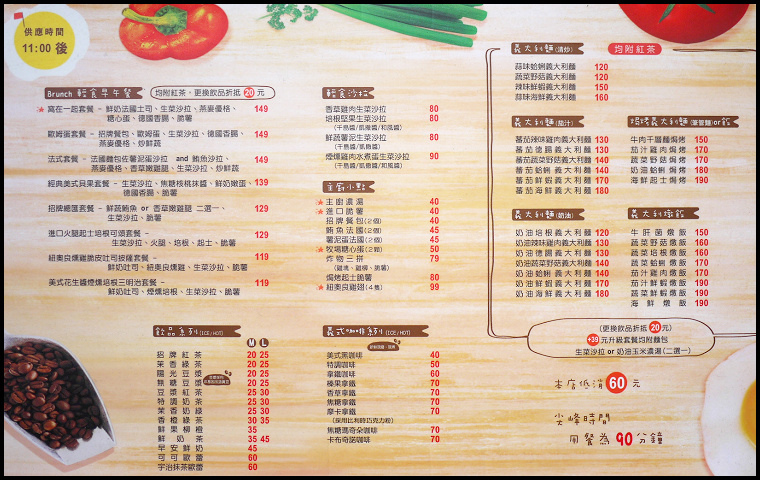 供應時間
11:00 後
Brunch 輕食早午餐 均附紅茶、更換飲品折抵 20 元
★ 窩在一起套餐 – 鮮奶法國土司、生菜沙拉、燕麥優格、 149
糖心蛋、德國香腸、脆薯
歐姆蛋套餐 – 招牌餐包、歐姆蛋、生菜沙拉、德國香腸、 149
燕麥優格、炒鮮蔬
法式套餐 – 法國麵包佐薯泥蛋沙拉 and 鮪魚沙拉、 149
燕麥優格、香草嫩雞腿、生菜沙拉、炒鮮蔬
經典美式貝果套餐 – 生菜沙拉、焦糖核桃抹醬、鮮奶嫩蛋、 139
德國香腸、脆薯
招牌總匯套餐 – 鮮蔬鮪魚 or 香草嫩雞腿 二選一、 129
生菜沙拉、脆薯
進口火腿起士培根可頌套餐 – 129
生菜沙拉、火腿、培根、起士、脆薯
紐奧良燻雞脆皮吐司披薩套餐 – 119
鮮奶吐司、紐奧良燻雞、生菜沙拉、脆薯
美式花生醬煙燻培根三明治套餐 – 119
鮮奶吐司、煙燻培根、生菜沙拉、脆薯
輕食沙拉
香草雞肉生菜沙拉 80
培根堅果生菜沙拉 80
(千島醬/凱撒醬/和風醬)
鮮蔬薯泥生菜沙拉 80
(千島醬/凱撒醬)
煙燻雞肉水煮蛋生菜沙拉 90
(千島醬/凱撒醬/和風醬)
主廚小點
★ 主廚濃湯 40
★ 進口脆薯 40
招牌餐包(2個) 40
鮪魚法國(2個) 45
薯泥蛋法國(2個) 45
★ 牧場糖心蛋(2顆) 50
炸物三拼 79
(雞塊、雞柳、脆薯)
焗烤起士脆薯 80
★ 紐奧良雞翅(4隻) 99
義大利麵(清炒) 均附紅茶
蒜味蛤蜊義大利麵 120
蔬菜野菇義大利麵 120
辣味鮮蝦義大利麵 150
蒜味海鮮義大利麵 160
義大利麵(茄汁)
蕃茄辣味雞肉義大利麵 130
蕃茄德腸義大利麵 130
蕃茄蔬菜野菇義大利麵 140
蕃茄蛤蜊義大利麵 140
蕃茄鮮蝦義大利麵 170
蕃茄海鮮義大利麵 180
焗烤義大利麵(筆管麵)or飯
牛肉千層麵焗烤 150
茄汁雞肉焗烤 170
蔬菜野菇焗烤 170
奶油雞肉焗烤 180
海鮮起士焗烤 190
義大利麵(奶油)
奶油培根義大利麵 120
奶油辣味雞肉義大利麵 130
奶油德腸義大利麵 130
奶油蔬菜野菇義大利麵 140
奶油蛤蜊義大利麵 140
奶油鮮蝦義大利麵 170
奶油海鮮義大利麵 180
義大利燉飯
牛肝菌燉飯 150
蔬菜野菇燉飯 160
蔬菜培根燉飯 160
蔬菜蛤蜊燉飯 170
茄汁雞肉燉飯 170
茄汁鮮蝦燉飯 190
蔬菜鮮蝦燉飯 190
海鮮燉飯 190
(更換飲品折抵 20 元)
+39 元升級套餐均附麵包
生菜沙拉 or 奶油玉米濃湯(二選一)
飲品系列(ICE/HOT)
M L
招牌紅茶 20 25
茉香綠茶 20 25
陽光豆漿 20 25
無糖豆漿 20 25
豆漿紅茶 25 30
特調奶茶 25 30
茉香奶綠 25 30
香橙綠茶 30 35
鮮果柳橙 35
鮮奶茶 35 45
早安鮮奶 45
可可歐蕾 60
宇治抹茶歐蕾 60
義式咖啡系列(ICE/HOT)
美式黑咖啡 40
特調咖啡 50
拿鐵咖啡 60
榛果拿鐵 70
香草拿鐵 70
焦糖拿鐵 70
摩卡拿鐵 70
(採用比利時巧克力粉)
焦糖瑪奇朵咖啡 70
卡布奇諾咖啡 70
本店低消 60 元
尖峰時間
用餐為 90 分鐘